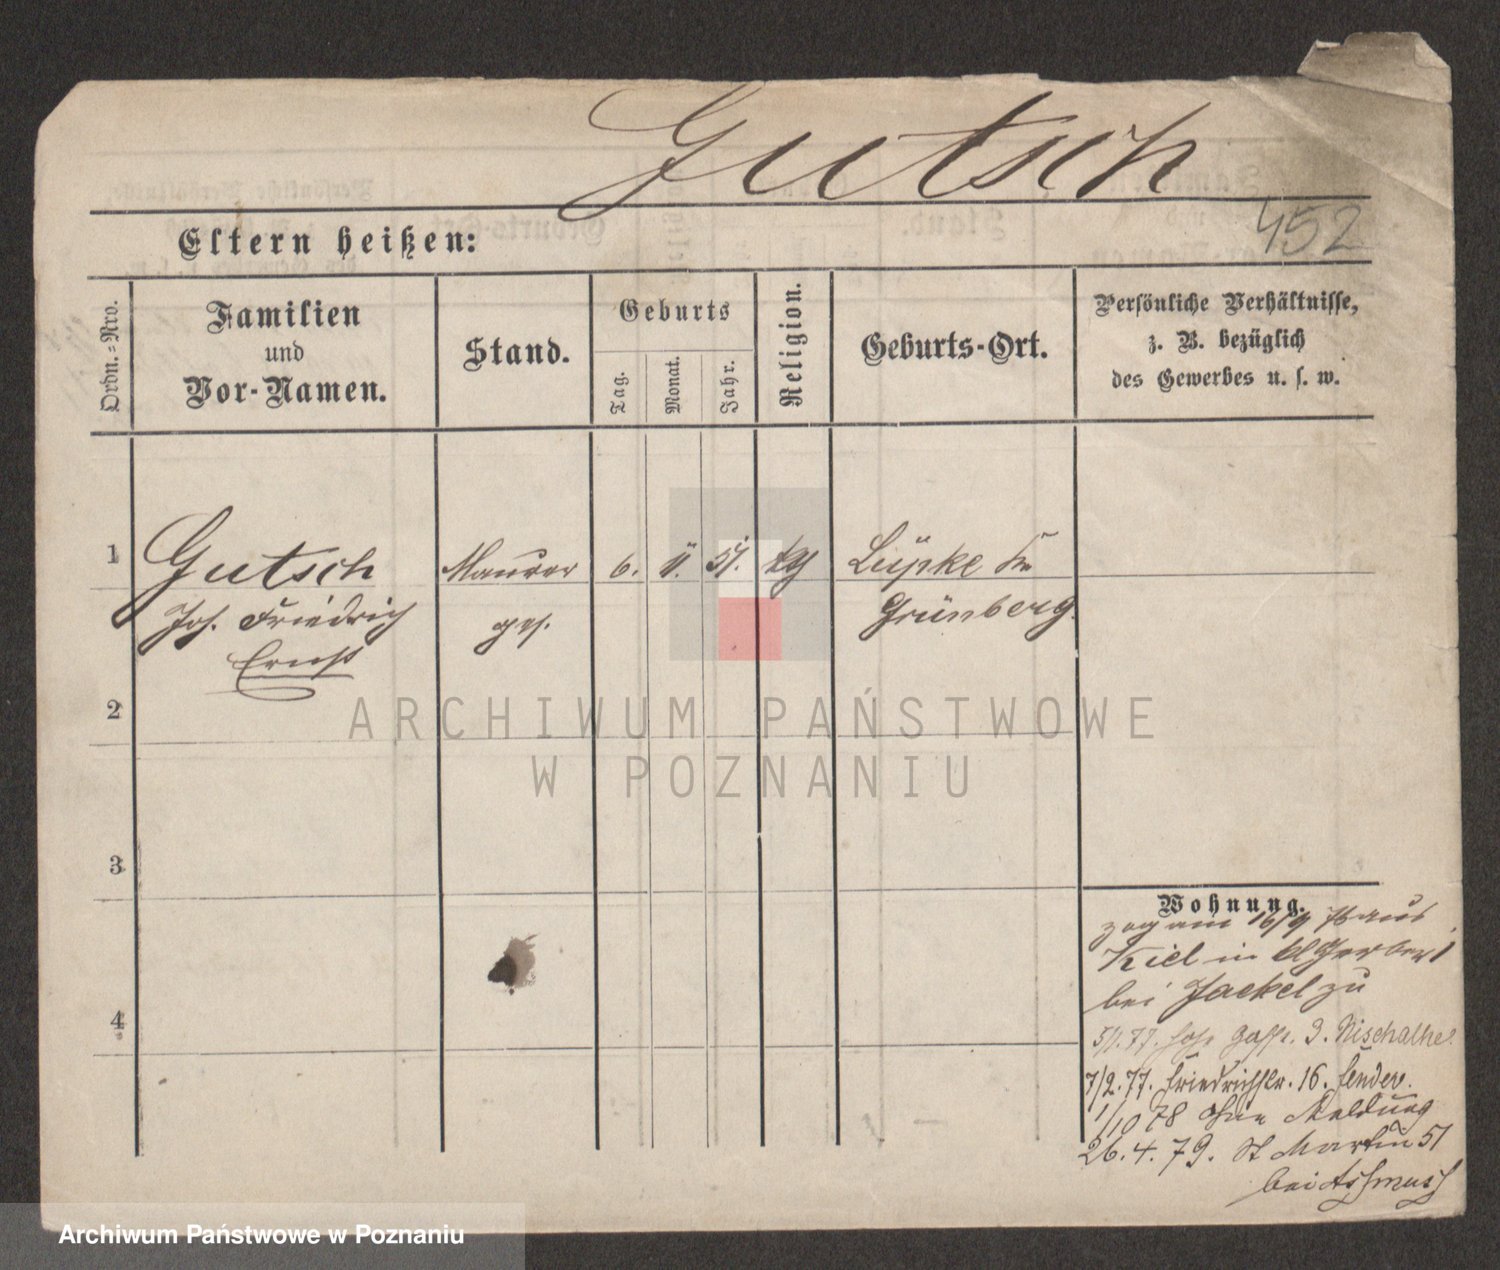 Gutsch
452
Eltern heißen:
Ordn.-Nro.
Familien
und
Vor-Namen.
Stand.
Geburts
Tag.
Monat.
Jahr.
Religion.
Geburts-Ort.
Persönliche Verhältnisse,
z. B. bezüglich
des Gewerbes u. s. w.
1 Gutsch Maurer 6. 11. 51.
Joh. Friedrich ges. Grünberg
Ernst
2
ARCHIWUM PAŃSTWOWE
W POZNANIU
3
4
Wohnung.
zog am 16/9 76 aus
Kiel in kl Gerber 1
bei Jaekel zu
5/1. 77. 3. Nischalke
7/2. 77. Friedrichstr. 16.
1/10 78 ohne Meldung
26. 4. 79. St Martin 51
bei Assmuss
Archiwum Państwowe w Poznaniu